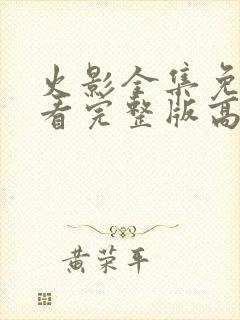 火影全集免
看完整版高
黄荣平